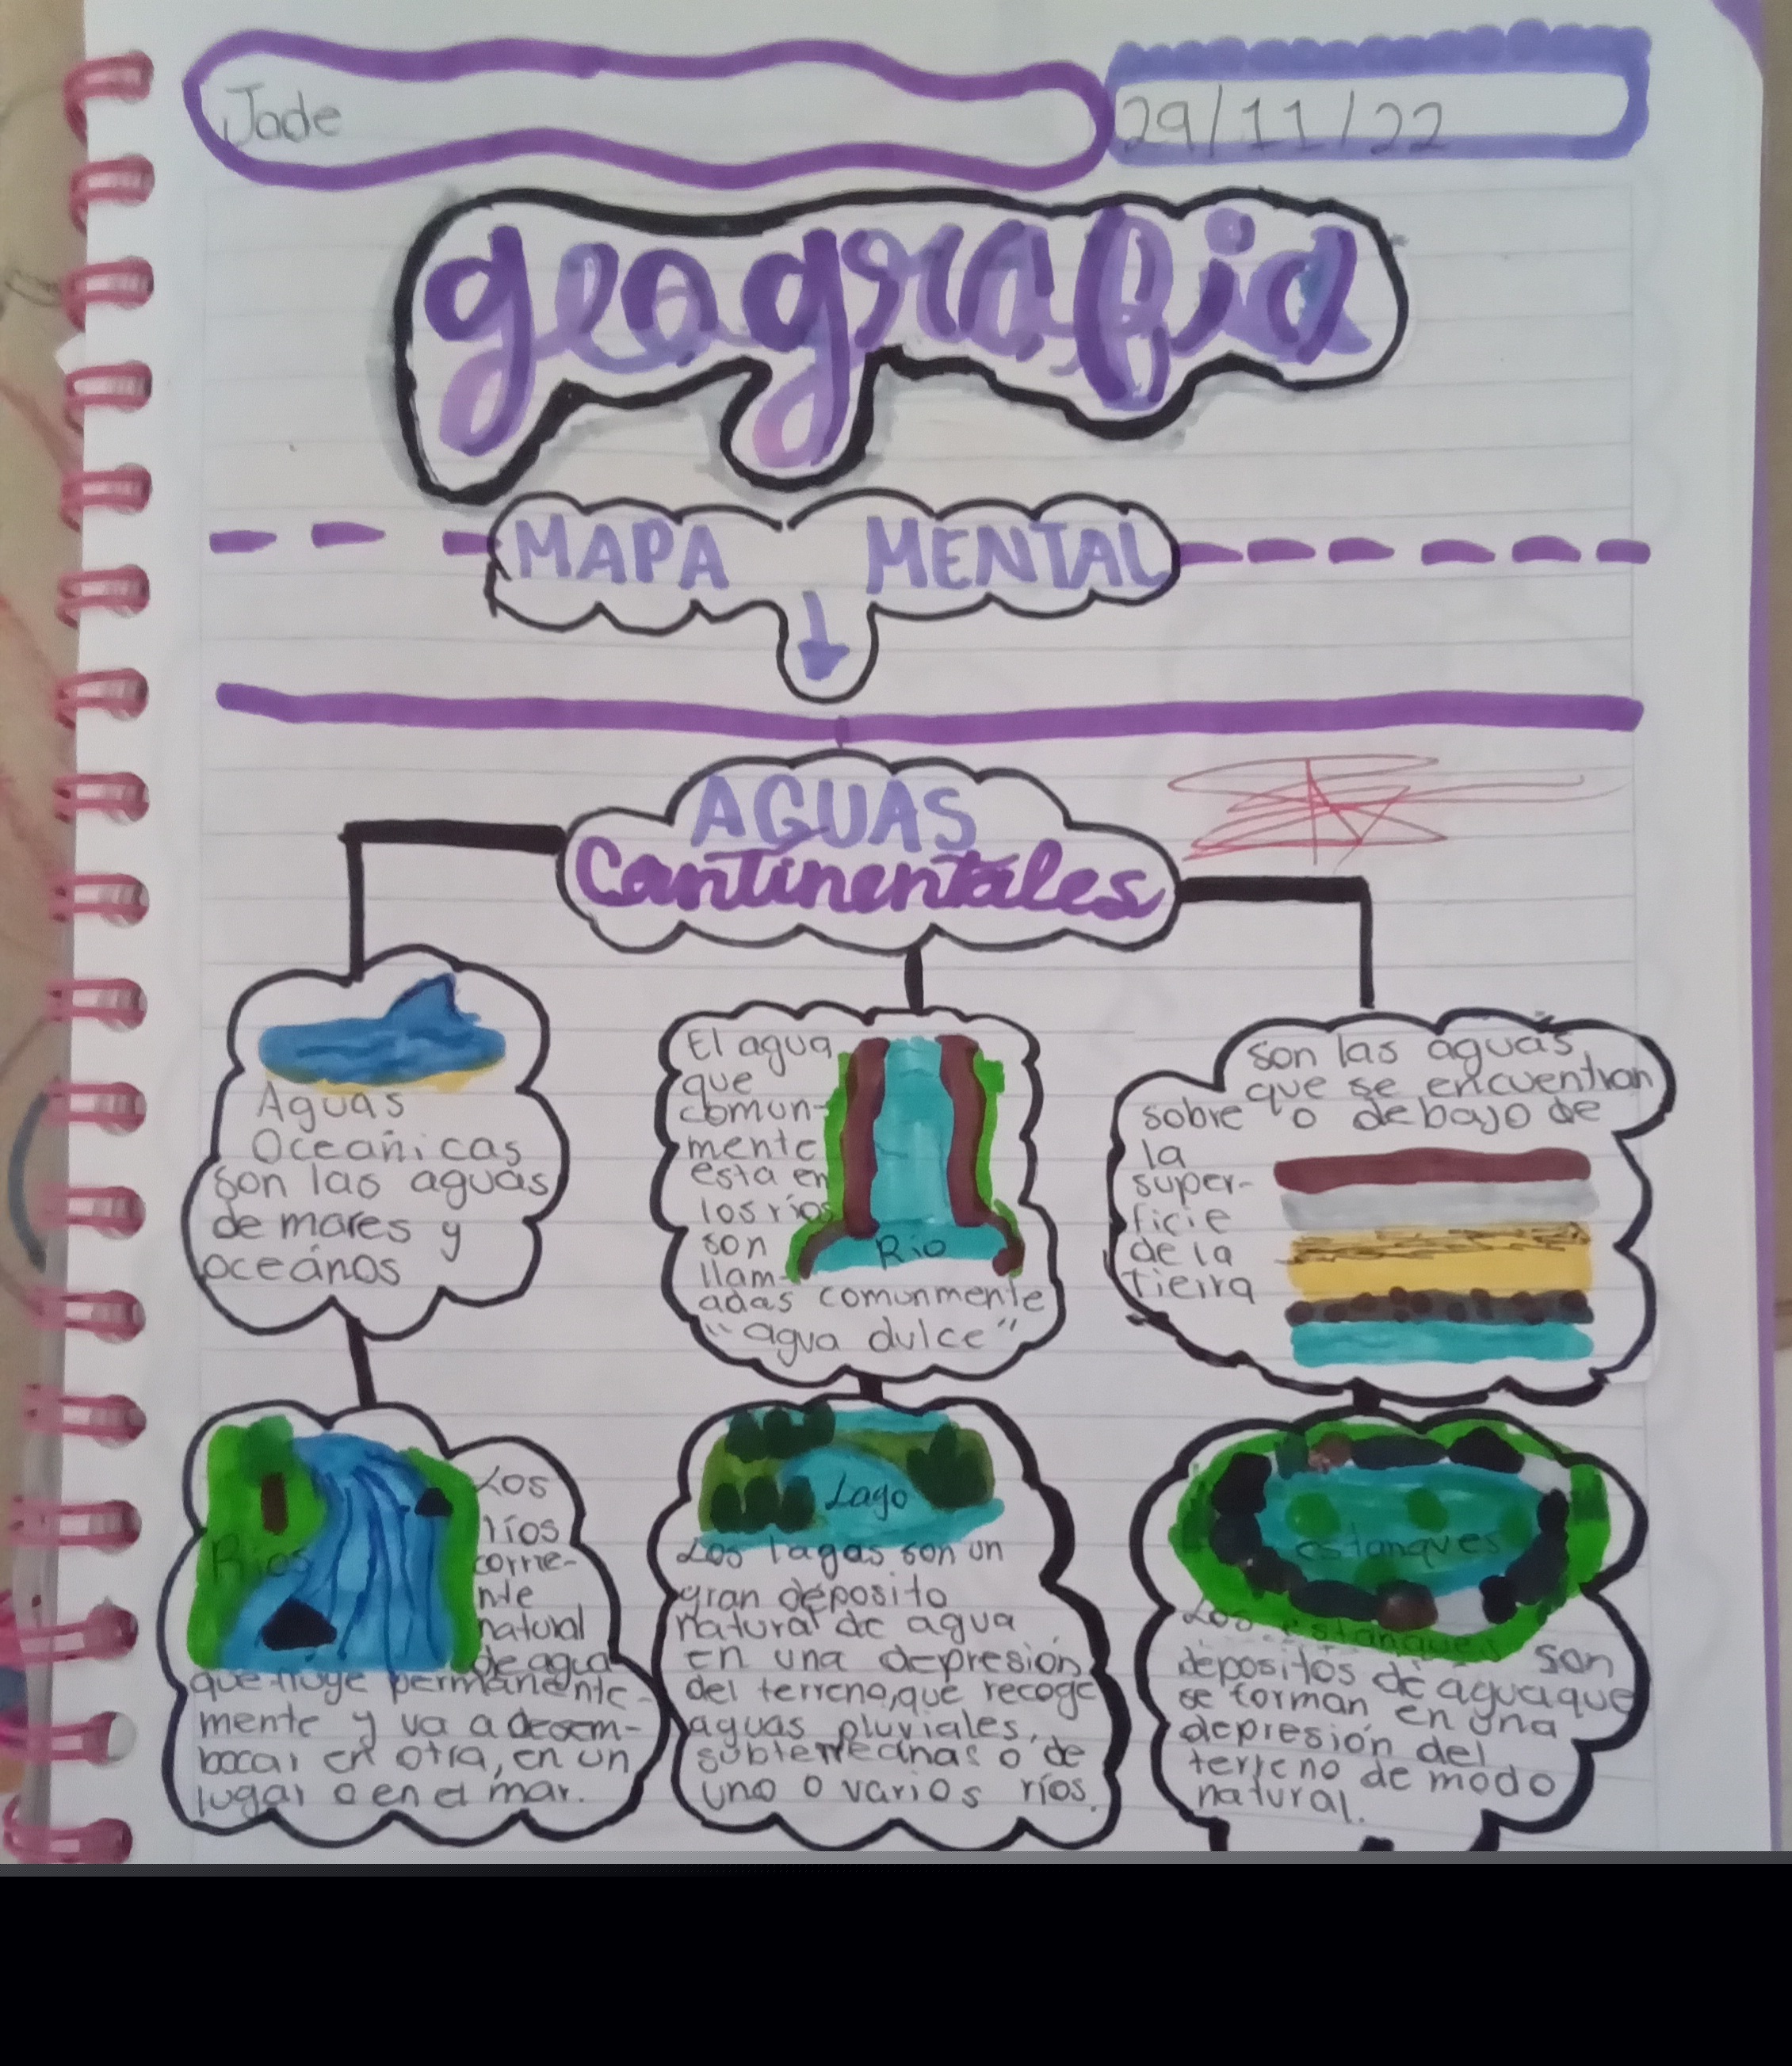 Jade
29/11/22
geografia
MAPA MENTAL
AGUAS
Continentales
Aguas
Oceánicas
son las aguas
de mares y
oceános
El agua
que
comun-
mente
esta en
los ríos
son
llam-
adas comunmente
"agua dulce"
Rio
son las aguas
que se encuentran
sobre o debajo de
la
super-
ficie
de la
tierra
Ríos
Los
ríos
corrie-
nte
natural
de agua
que fluye permanente-
mente y va a desem-
bocar en otra, en un
lugar o en el mar.
Lago
Los lagos son un
gran deposito
natural de agua
en una depresión
del terreno, que recoge
aguas pluviales,
subterreanas o de
uno o varios ríos.
estanques
Los estanques son
depositos de agua que
se forman en una
depresión del
terreno de modo
natural.